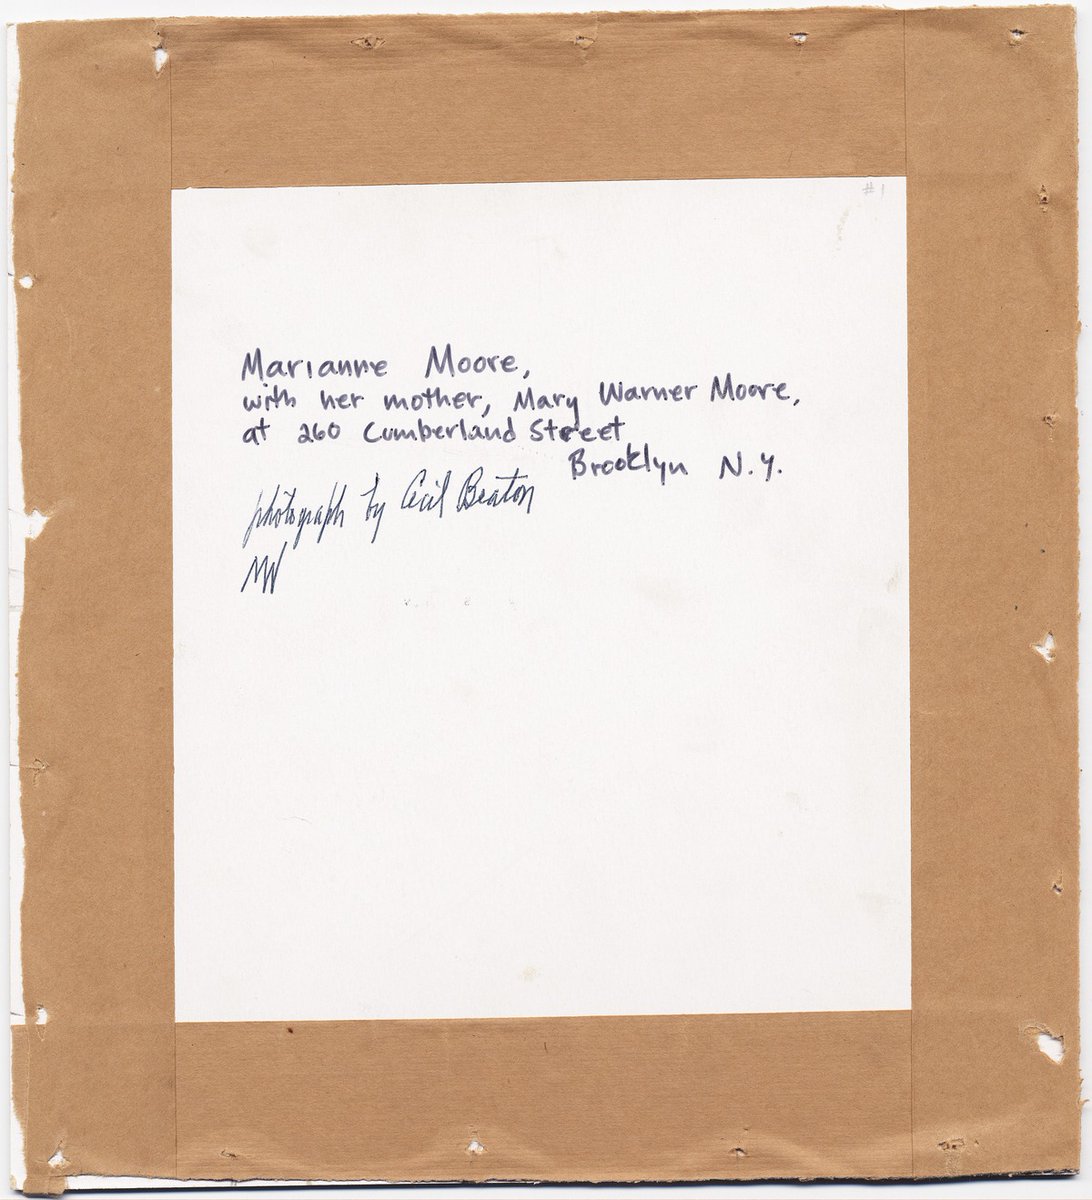 #1
Marianne Moore,
with her mother, Mary Warner Moore,
at 260 Cumberland Street
Brooklyn N.Y.
photograph by Cecil Beaton
MW